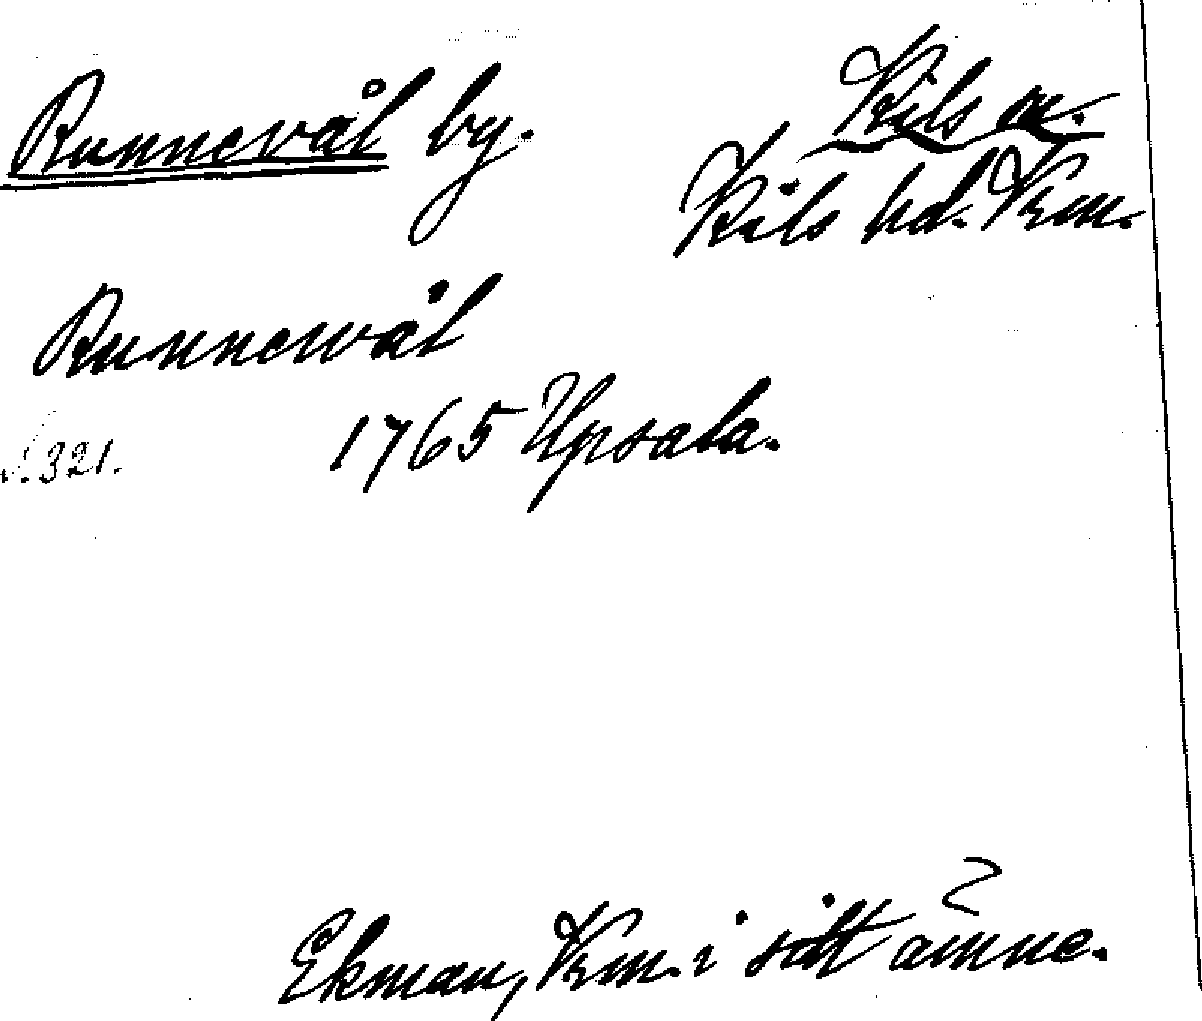 Runnevål by.
Kils sn.
Kils hd. Vrm.
Runnewål
s. 321.
1765 Upsala.
Ekman, Vrm. i sitt ämne.